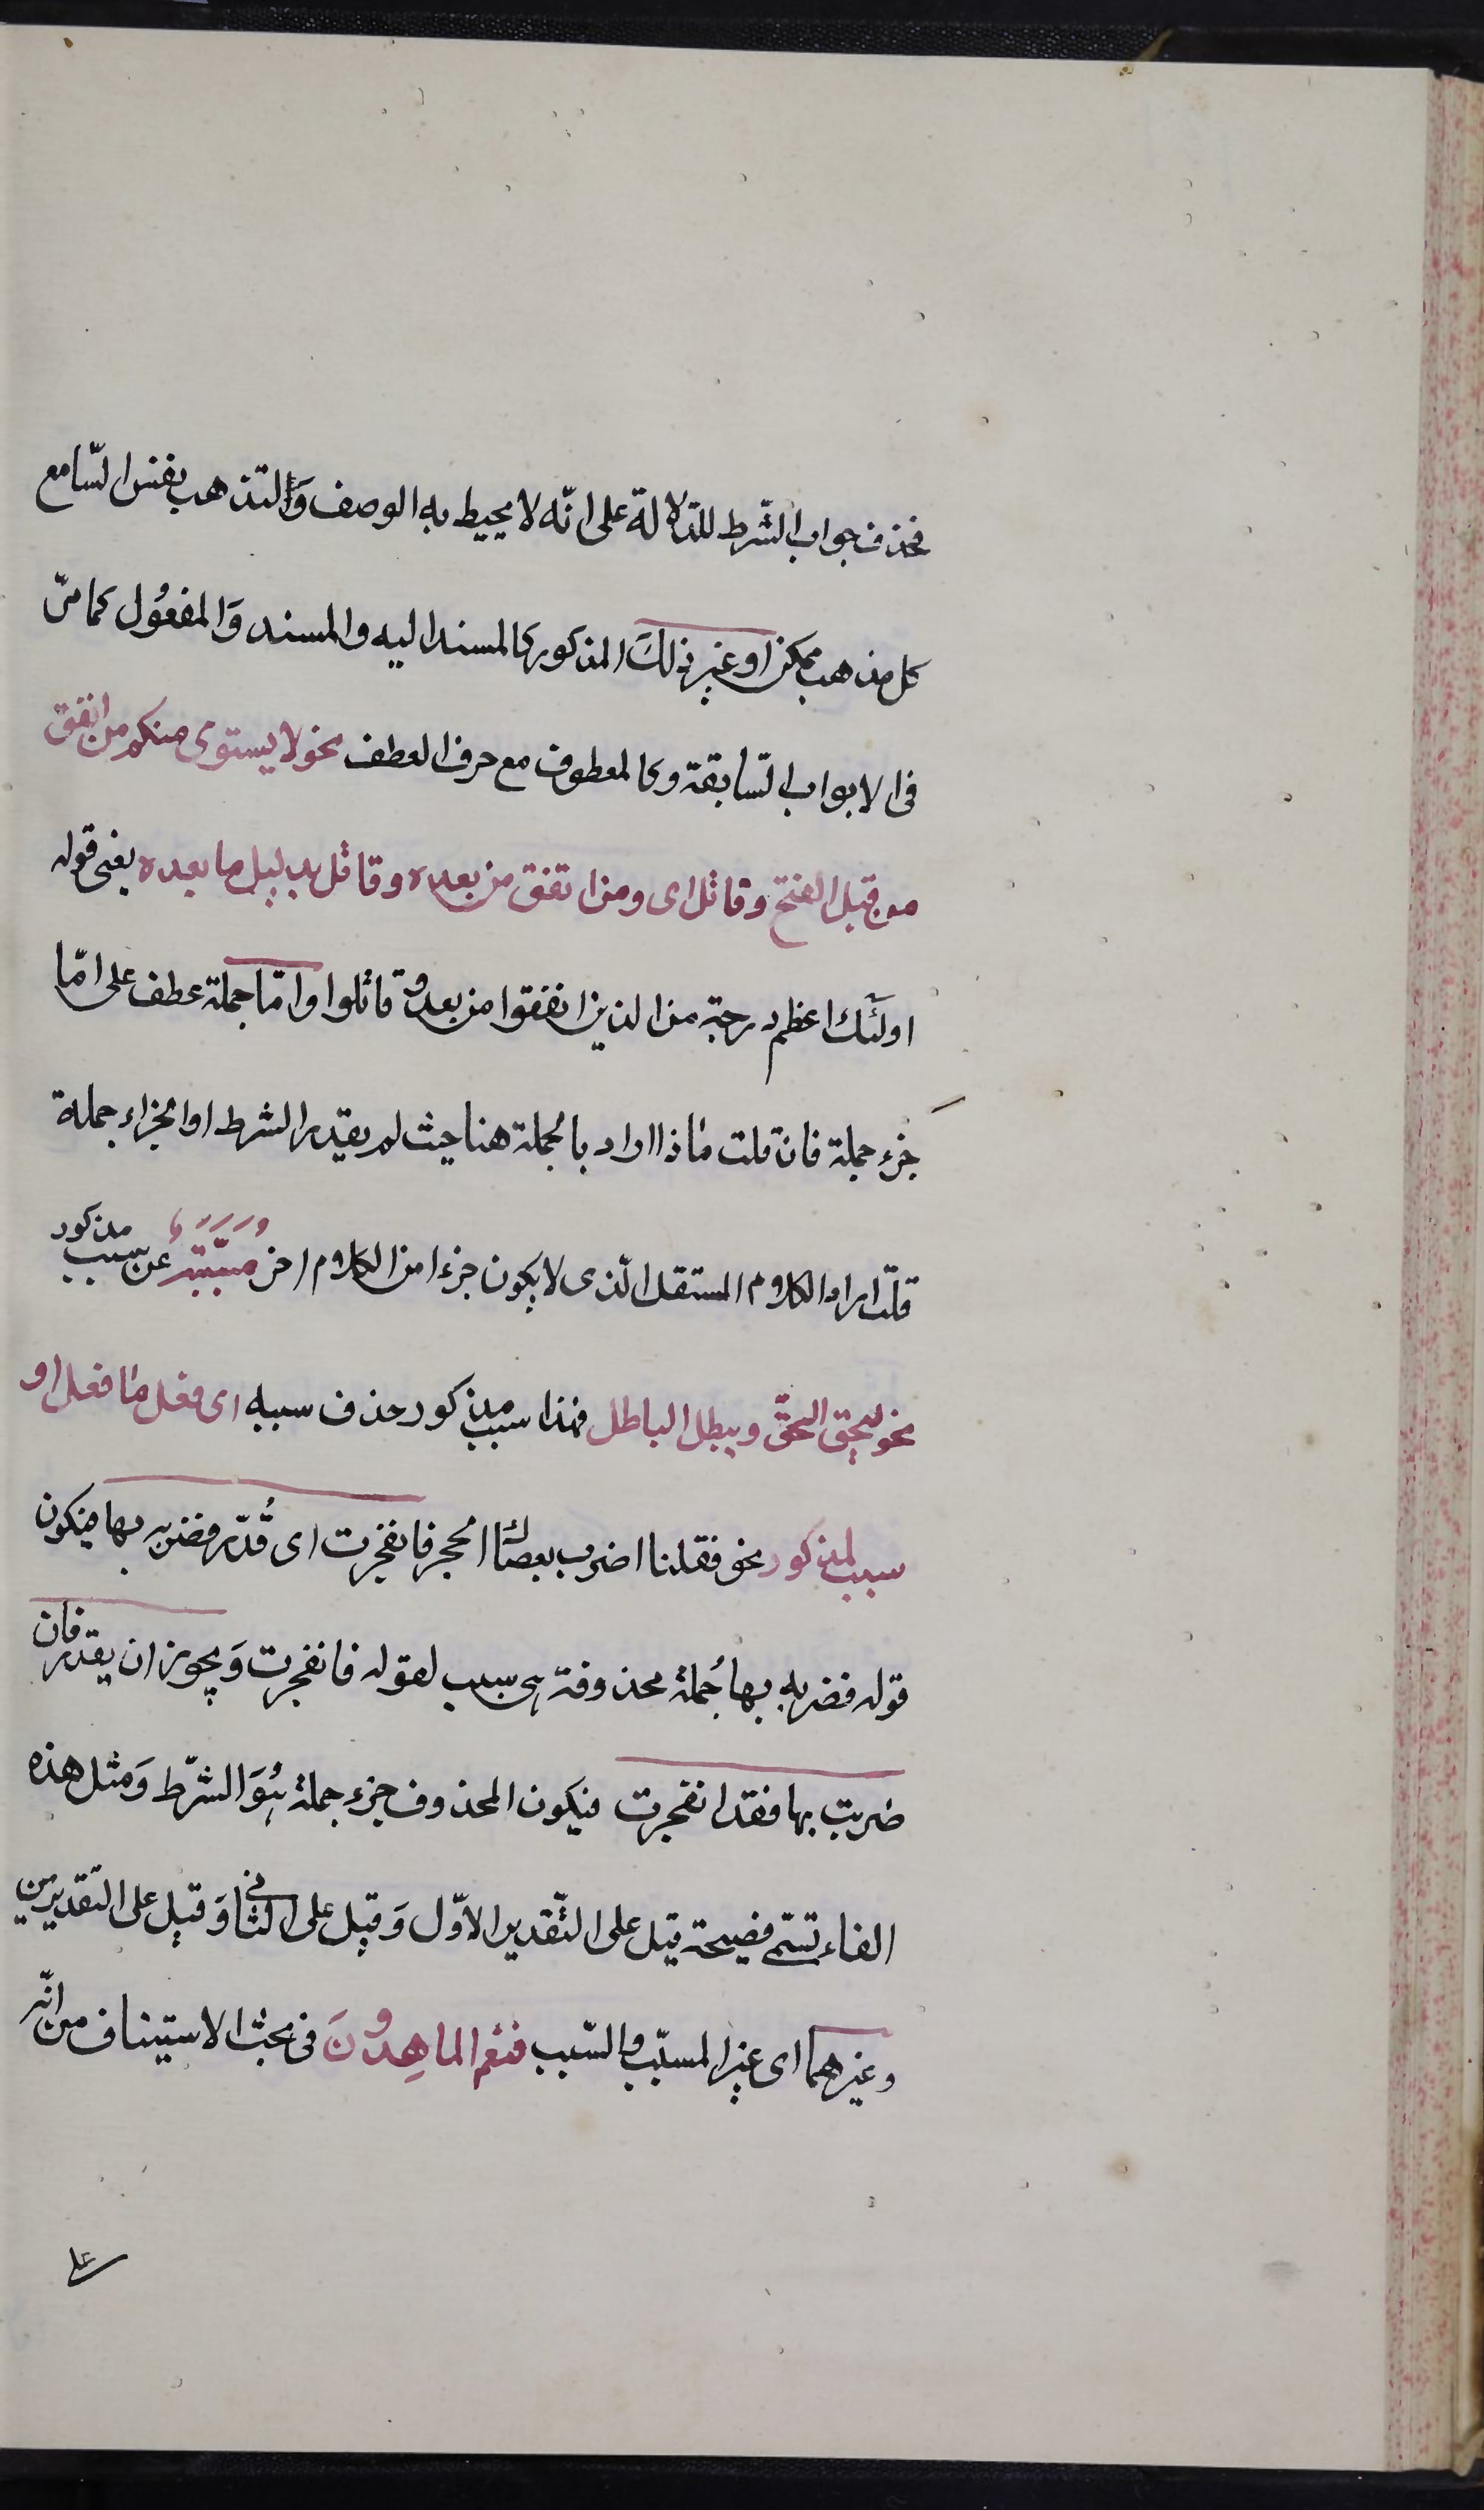 فحذف جواب الشّرط للدّلالة على انّه لا يحيط به الوصف وَالتذهب نفس السّامع
كل مذهب ممكن او غير ذلكَ المذكور كالمسند اليه والمسند وَالمفعُول كما مرّ
فى الابواب السّابقة وكالمعطوف مع حرف العطف نحو لا يستوى منكم من انفق
من قبل الفتح وقاتل اى ومن انفق من بعده وقاتل بدليل ما بعده يعنى قوله
اولئك اعظم درجة من الذين انفقوا من بعد وقاتلوا وامّا جملة عطف على امّا
جزء جملة فان قلت ماذا اراد بالجملة هنا حيث لم يقدر الشرط او الجزاء جملة
قلت اراد الكلام المستقل الّذى لا يكون جزءا من الكلام اخر مسَبَّبَةٌ عن سبب مذكور
نحو ليحق الحقّ ويبطل الباطل فهذا سبب مذكور حذف سببه اى فعل ما فعل او
سبب لمذكور نحو فقلنا اضرب بعصاك الحجر فانفجرت اى قُدّر فضربه بها فيكون
قوله فضربه بها جُملة محذوفة هى سبب لقوله فانفجرت وَيجوز ان يقدر فان
ضربت بها فقد انفجرت فيكون المحذوف جزء جملة هُوَ الشّرط وَمثل هذه
الفاء تسمّى فصيحة قيل على التّقدير الاوّل وَقيل على الثّانى وَقيل على التّقديرين
وغيرهما اى غير المسبّب والسّبب فنعم الماهِدُونَ فى بحث الاستيناف من انّه
على